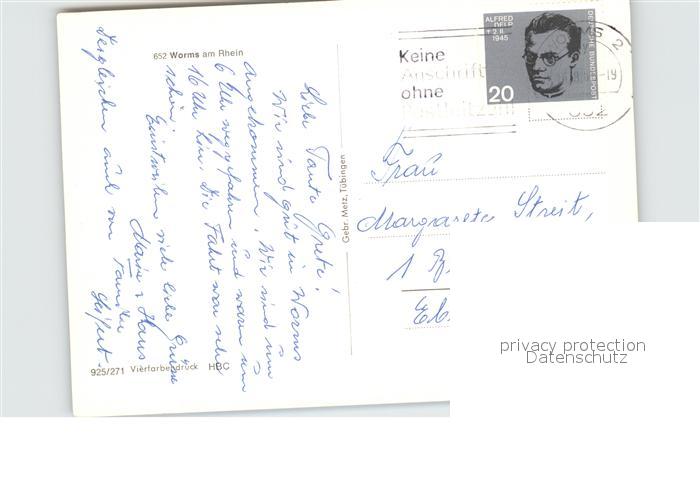 652 Worms am Rhein
Liebe Tante Grete!
Wir sind gut in Worms
angekommen. Wir sind um
6 Uhr weggefahren und waren um
16 Uhr hier. Die Fahrt war sehr
schön.
Einstweilen viele liebe Grüsse
Maria + Hans
Desgleichen auch von Familie
Seifert.
925/271 Vierfarbendruck HBC
Gebr. Metz, Tübingen
Keine
Anschrift
ohne
Postleitzahl
ALFRED
DELP
† 2.II.
1945
DEUTSCHE BUNDESPOST
20
Frau
Margarete Streit,
1
privacy protection
Datenschutz